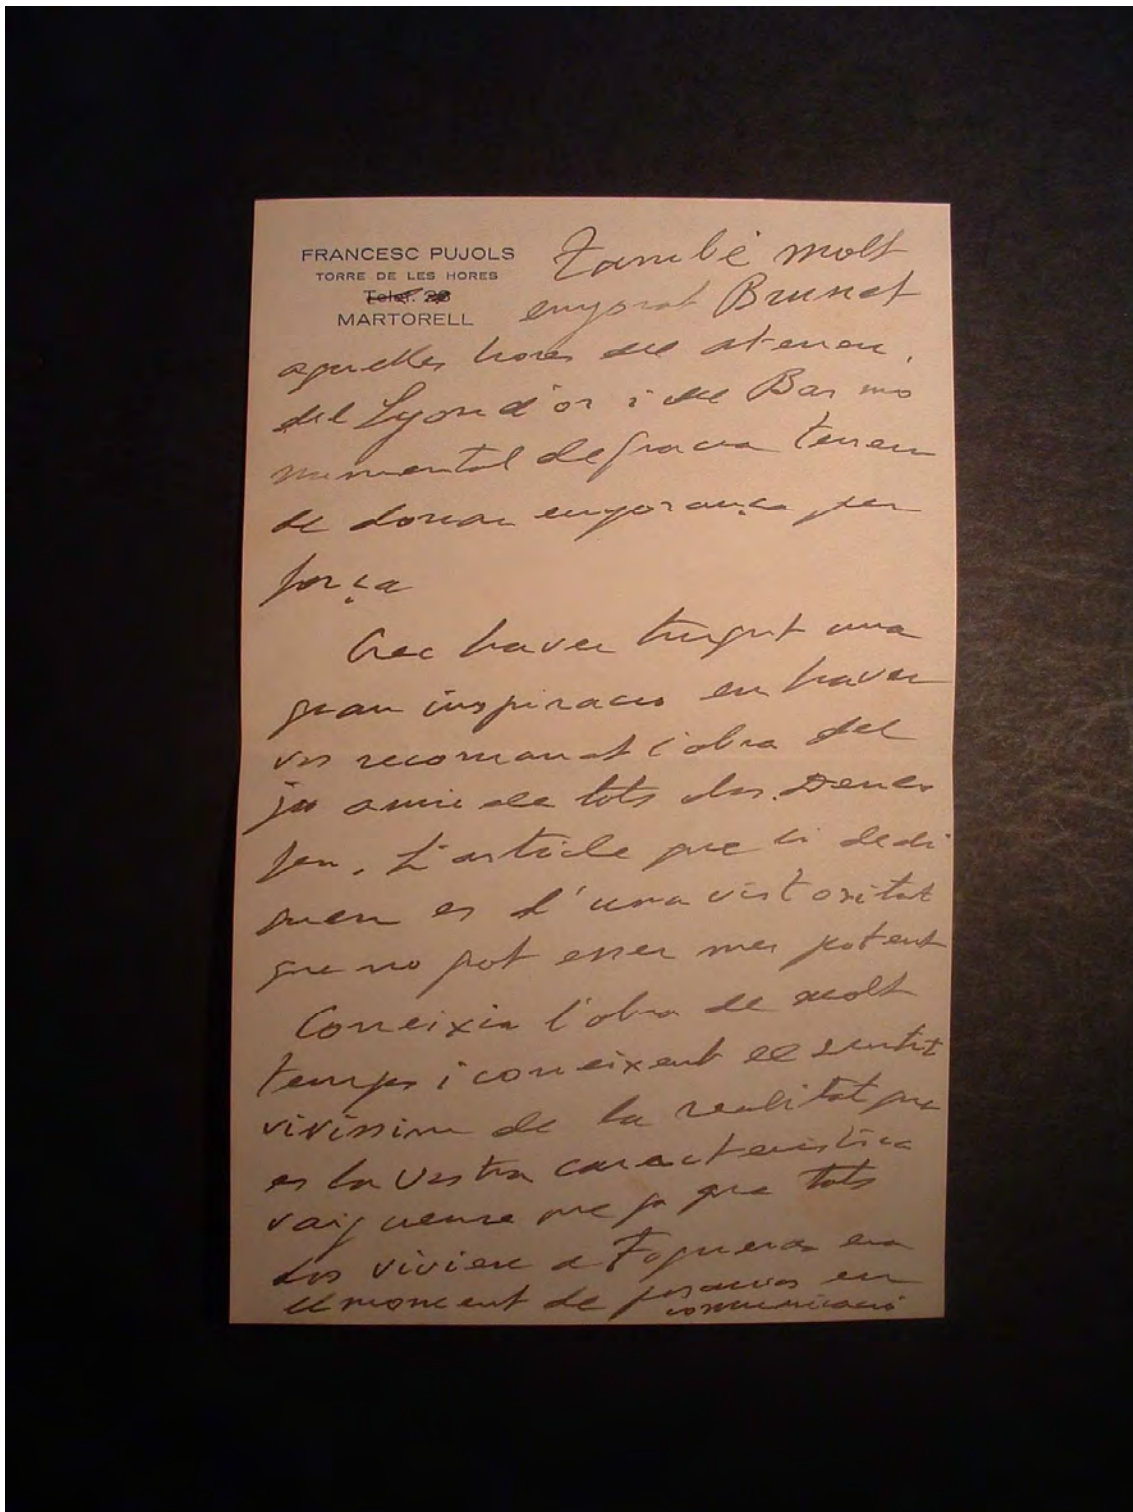 FRANCESC PUJOLS
TORRE DE LES HORES
Telef. 28
MARTORELL
També molt
enyorat Brunet
aquelles hores del ateneu,
del Lyon d'or i del Bar mo
numental de gracia tenen
de donar enyorança per
força
Crec haver tingut una
gran inspiracio en haver
vos recomanat l'obra del
ja amic de tots dos. Deulo
feu. L'article que li dedi
queu es d'una vistositat
que no pot esser mes potent
Coneixia l'obra de molt
temps i coneixent el sentit
vivissim de la realitat que
es la vostra caracteristica
vaig creure que ja que tots
dos vivieu a Figueras era
el moment de posarvos en
comunicació